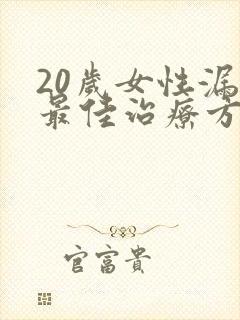 20歲女性漏
最佳治療方
官富貴